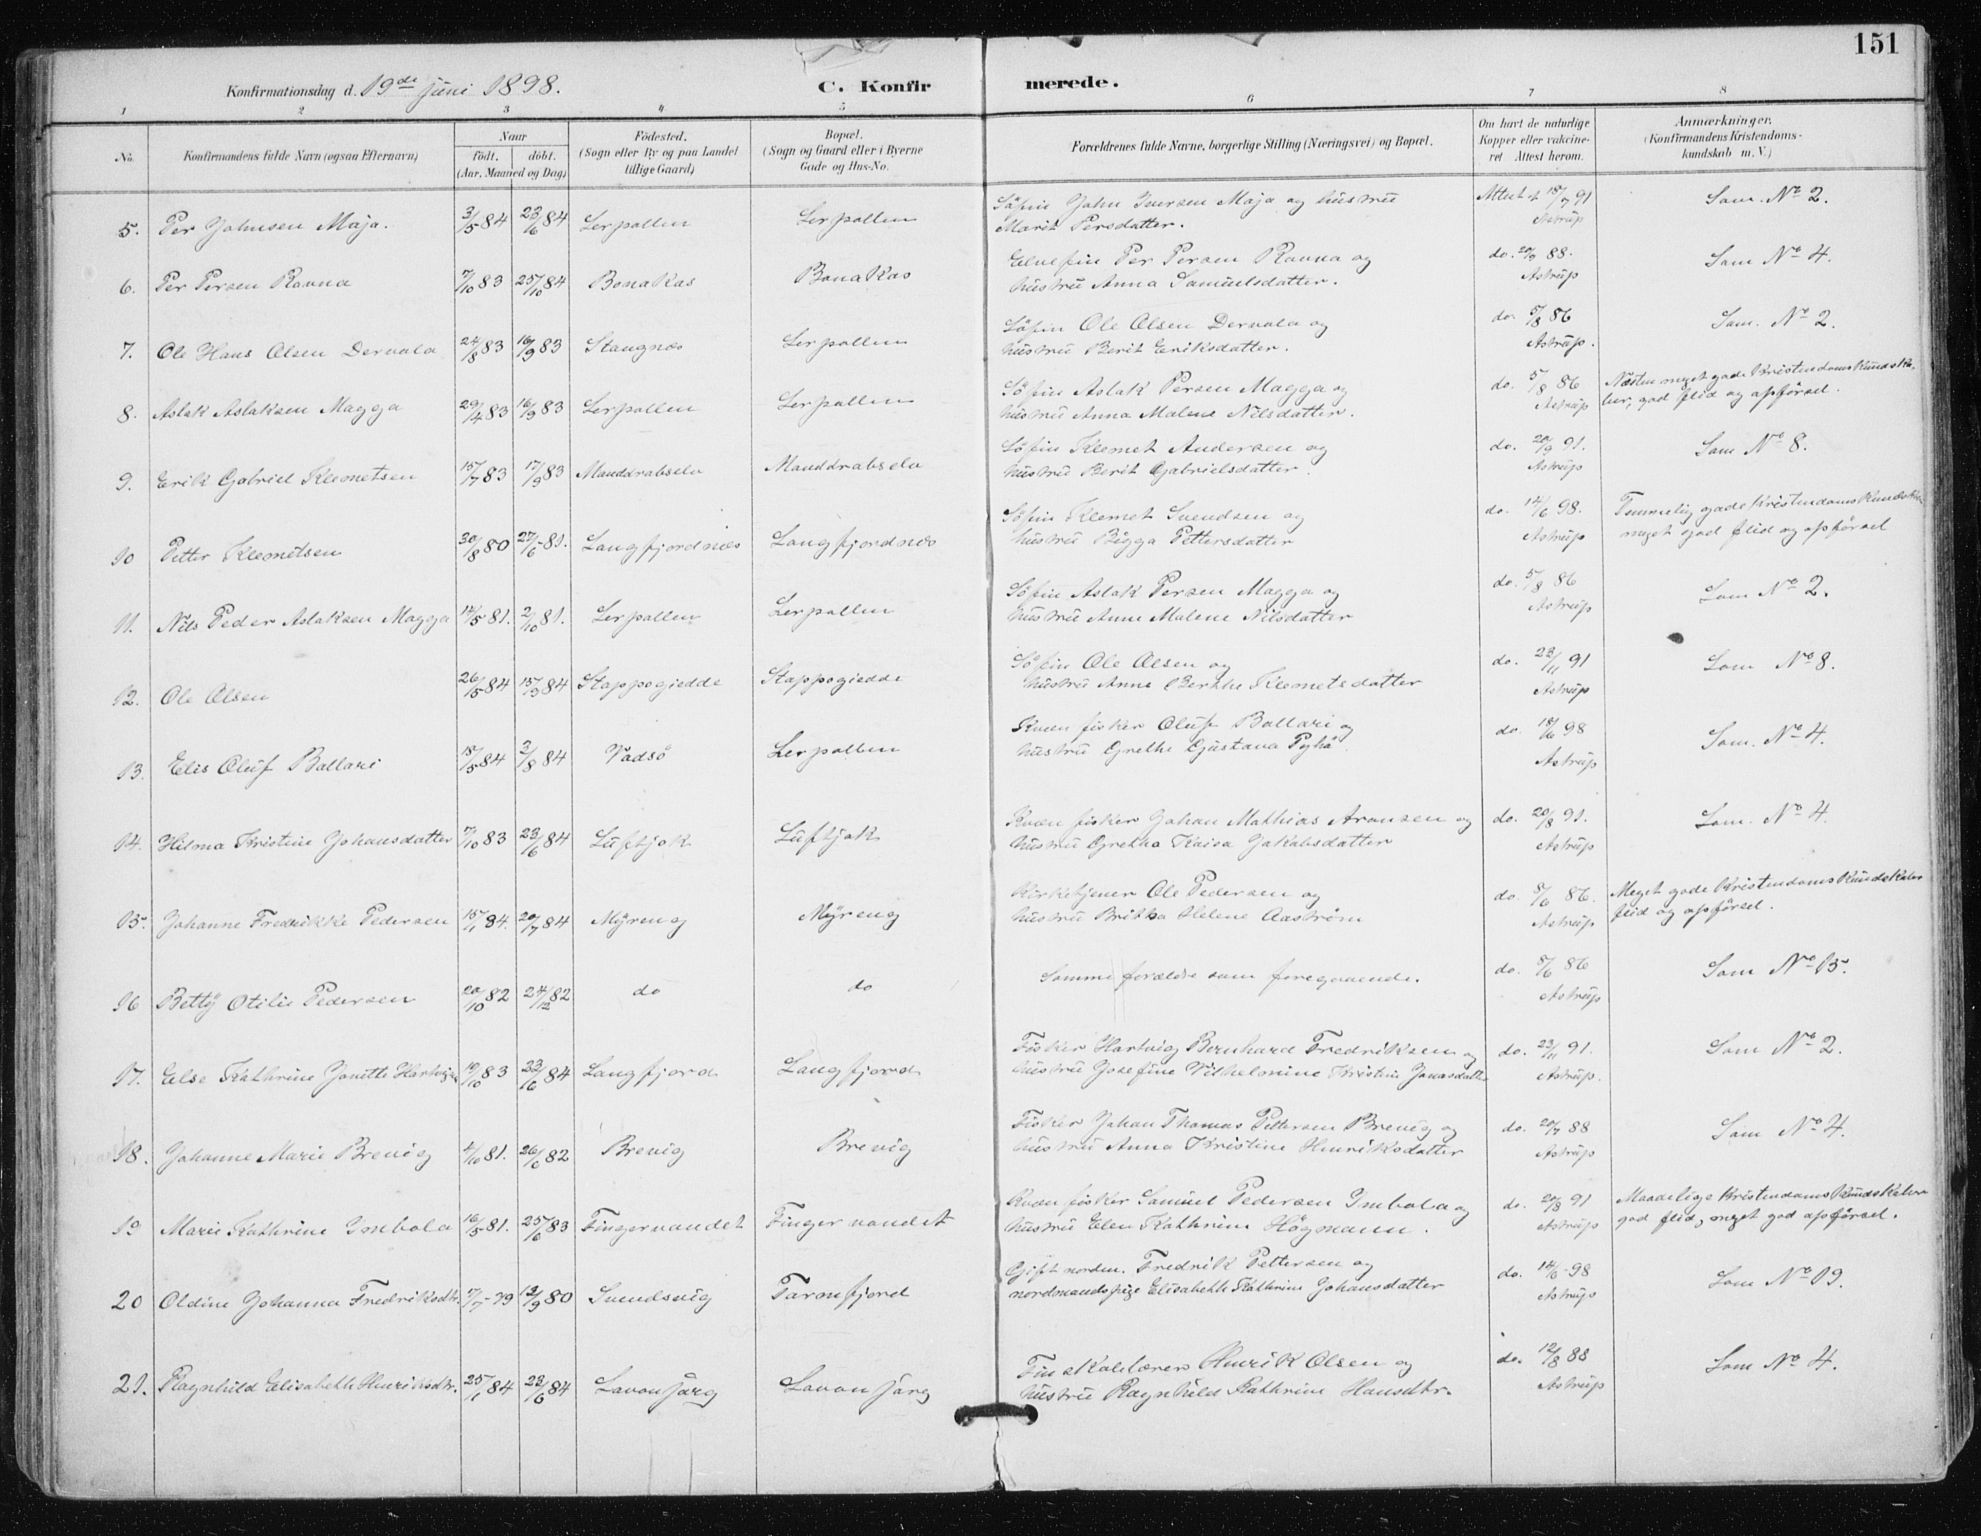 151
Konfirmationsdag d. 19de juni 1898.
C. Konfirmerede.
1 2 3 4 5 6 7 8
No. Konfirmandens fulde Navn (ogsaa Efternavn)
Naar født. døbt. (Aar, Maaned og Dag)
Fødested. (Sogn eller By og paa Landet tillige Gaard)
Bopæl. (Sogn og Gaard eller i Byerne Gade og Hus-No.
Forældrenes fulde Navne, borgerlige Stilling (Næringsvei) og Bopæl.
Om havt de naturlige Kopper eller vakcineret Attest herom.
Anmærkninger. (Konfirmandens Kristendomskundskab m. V.)
5. Per Johnsen Maja. 3/5 84 23/6 84 Lerpollen Lerpollen Söfin John Iversen Maja og hustru Attest af 18/7 91 Som No 2.
Marit Persdatter. Astrup
6. Per Persen Ravna 7/10 83 25/10 84 Bonakas Bonakas Elvefin Per Persen Ravna og do. 20/9 88. Som No 4.
hustru Anna Samuelsdatter. Astrup
7. Ole Hans Olsen Dervola 24/8 83 16/9 83 Stangnæs Lerpollen Söfin Ole Olsen Dervola og do. 5/8 86 Som No 2.
hustru Berit Eriksdatter. Astrup.
8. Aslak Aslaksen Magga 29/4 83 16/9 83 Lerpollen Lerpollen Söfin Aslak Persen Magga og do. 5/8 86 Næsten meget gode Kristendomskundska-
hustru Anna Malene Nilsdatter. Astrup ber, god flid og opförsel.
9. Erik Gabriel Klemetsen 15/7 83 17/9 83 Manddrabselv Manddrabselv Söfin Klemet Andersen og do. 20/9 91. Som No 8.
hustru Berit Gabrielsdatter. Astrup
10 Petter Klemetsen 30/8 80 27/6 81. Langfjordnæs Langfjordnæs Söfin Klemet Svendsen og do. 14/6 98. Temmelig gode
hustru Bigga Pettersdatter Astrup meget god flid og opförsel
11. Nils Peder Aslaksen Magga 14/5 81. 2/10 81. Lerpollen Lerpollen Söfin Aslak Persen Magga og do. 5/8 86 Som No 2.
hustru Anne Malene Nilsdatter Astrup
12. Ole Olsen 26/5 84 15/3 84 Stappogiedde Stappogiedde Söfin Ole Olsen og do. 23/11 91 Som No 8.
hustru Anne Berthe Klemetsdatter Astrup
13. Elis Oluf Ballari 18/5 84 3/8 84 Vadsö Lerpollen Kvæn fisker Oluf Ballari og do. 18/6 98 Som No 4.
hustru Grethe Gustava Pyhä. Astrup
14. Hilma Kristine Johansdatter 7/10 83 23/6 84 Luftjok Luftjok Kvæn fisker Johan Mathias Aronsen og do. 20/8 91. Som No 4.
hustru Gretha Kaisa Jakobsdatter Astrup
15. Johanne Fredrikke Pedersen 15/1 84. 20/7 84 Myreng Myreng Kirketjener Ole Pedersen og do. 8/6 86. Meget gode Kristendomskundskaber
hustru Britha Helene Aaström Astrup flid og opförsel.
16 Betty Otilie Pedersen 20/10 82 24/12 82 do do Samme forældre som foregaaende. do. 8/6 86 Som No 15.
Astrup
17. Else Kathrine Jonette 19/10 83 23/6 84 Langfjord Langfjord Fisker Hartvig Bernhard Fredriksen og do. 23/11 91. Som No 2.
hustru Josefine Vilhelmine Kristine Jonasdatter Astrup.
18. Johanne Marie Brevig 4/10 81. 26/6 82 Brevig Brevig Fisker Johan Thomas Pettersen Brevig og do. 20/7 88 Som No 4.
hustru Anna Kristine Henriksdatter Astrup
19 Marie Kathrine Imbola 16/5 81. 25/6 83 Fingervandet Fingervandet Kvæn fisker Samuel Pedersen Imbola og do. 20/8 91 Maadelige Kristendomskundskaber
hustru Elen Kathrine Högmann. Astrup god flid, meget god opförsel.
20 Oldine Johanna Fredriksdtr. 7/7-79 12/9 80 Svendsvig Tarmfjord Gift nordm. Fredrik Pettersen og do. 14/6-98 Som No 19.
nordmandspige Elisabeth Kathrine Johansdatter Astrup
21. Ragnhild Elisabeth Henriksdtr. 25/1 84 23/6 84 Lavonjarg Lavonjarg Fin skolelærer Henrik Olsen og do. 12/8 88 Som No 4.
hustru Ragnhild Kathrine Hansdtr. Astrup